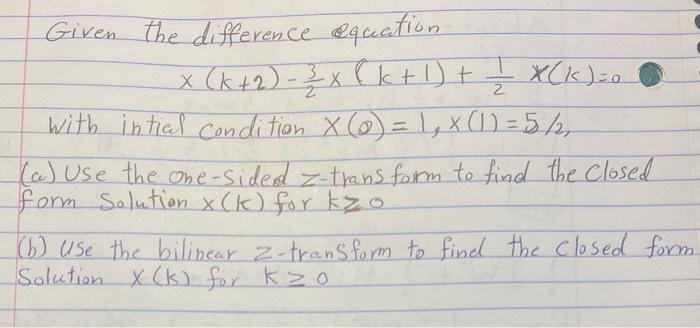 Given the difference equation
x (k+2) - 3/2 x (k+1) + 1/2 x(k)=0
With intial condition X(0) = 1, x(1) = 5/2,
(a) Use the one-sided z-transform to find the closed
form solution x(k) for k≥0
(b) Use the bilinear z-transform to find the closed form
Solution X(k) for k ≥ 0